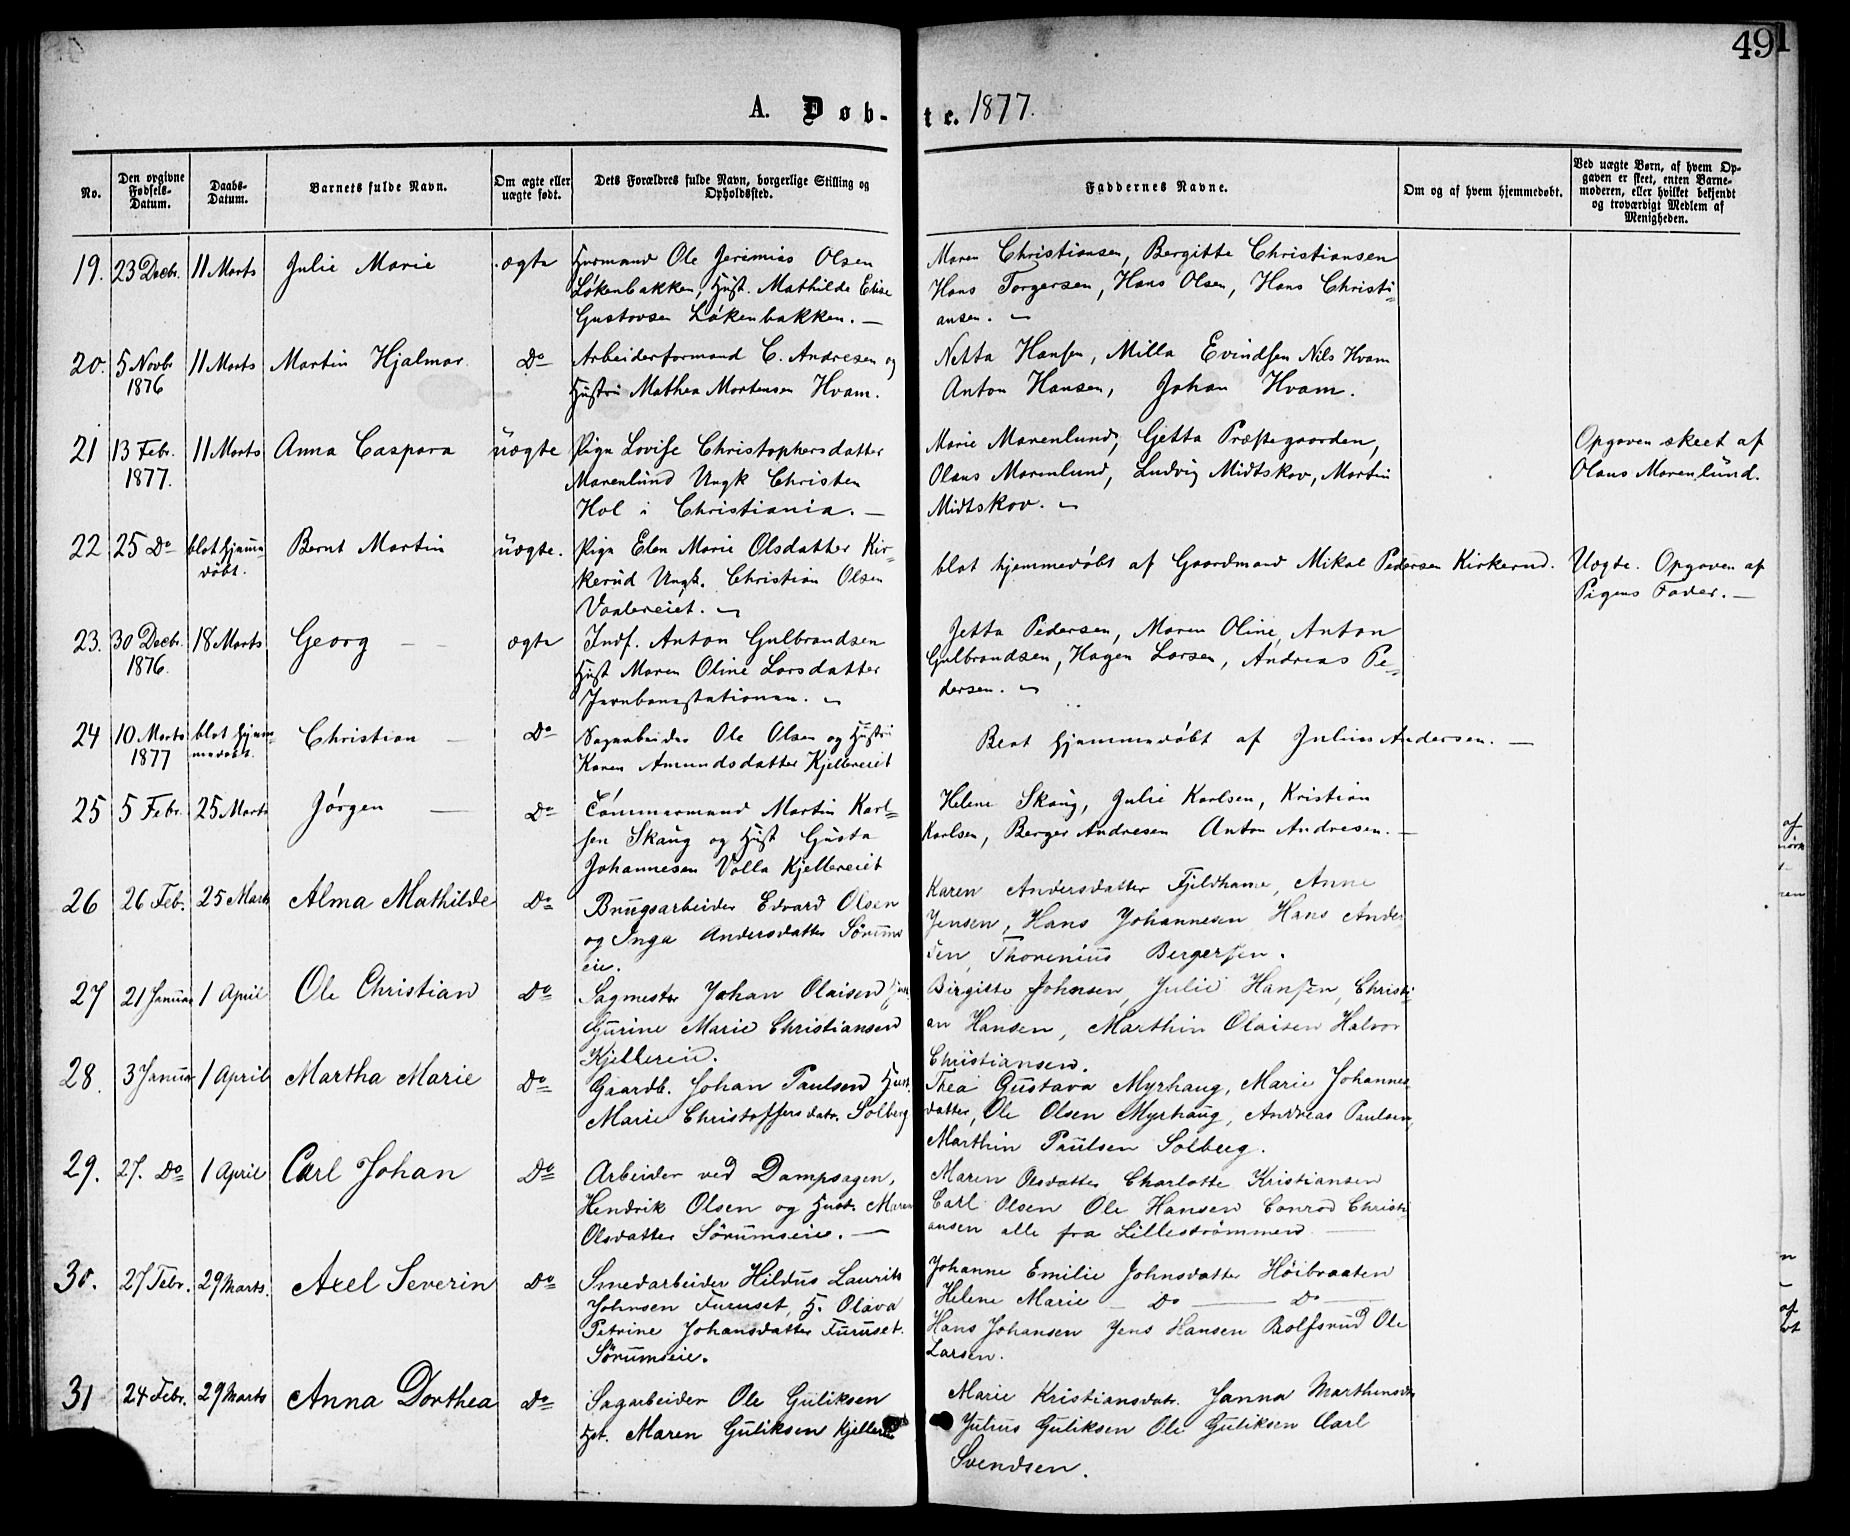 491
A. Døb-te. 1877.
No.
Den opgivne Fødsels-Datum.
Daabs-Datum.
Barnets fulde Navn.
Om ægte eller uægte født.
Dets Forældres fulde Navn, borgerlige Stilling og Opholdssted.
Faddernes Navne.
Om og af hvem hjemmedøbt.
Ved uægte Børn, af hvem Opgaven er skeet, enten Barnemoderen, eller hvilket bekjendt og troværdigt Medlem af Menigheden.
19. 23 Decbr. 11 Marts Julie Marie ægte
Husmand Ole Jerimias Olsen
Løkenbakken, Hust. Mathilde Elise
Gustavsen Løkenbakken. —
Maren Christiansen, Bergitte Christiansen
Hans Torgersen, Hans Olsen, Hans Christi-
ansen.
20. 5 Novbr 1876 11 Marts Martin Hjalmar Do
Arbeiderformand C. Andresen og
Hustru Mathea Mortensen Hvam.
Netta Hansen, Milla Evindsen Nils Hvam
Anton Hansen, Johan Hvam.
21 13 Febr. 1877. 11 Marts Anna Caspara uægte
Pige Lovise Christophersdatter
Marenlund Ungk Christen
Hol i Christiania. —
Marie Marenlund, Getta Præstegaarden,
Olaus Marenlund, Ludvig Midtskov, Martin
Midtskov.
Opgaven skeet af
Olaus Marenlund.
22 25 Do blot hjemme døbt. Bernt Martin uægte.
Pige Elen Marie Olsdatter Kir-
kerud Ungk. Christian Olsen
Vaalereiet.
blot hjemmedøbt af Gaardmand Mikal Pedersen Kirkerud.
Uægte. Opgaven af
Pigens Fader. —
23. 30 Decbr. 1876. 18 Marts Georg — ægte
Indf. Anton Gulbrandsen
Hust Maren Oline Larsdatter
Jernbanestationen.
Jetta Pedersen, Maren Oline, Anton
Gulbrandsen, Hagen Larsen, Andreas Pe-
dersen.
24 10 Marts 1877 blot hjem- medøbt. Christian — Do
Sagarbeider Ole Olsen og Hustru
Karen Amundsdatter Kjellereiet
Blot hjemmedøbt af Julius Andersen. —
25 5 Febr. 25 Marts Jørgen — Do
Tømmermand Martin Karl-
sen Skaug og Hust Gusta
Johannesen Volla Kjellereiet
Helene Skaug, Julie Karlsen, Kristian
Karlsen, Berger Andresen Anton Andresen. —
26 26 Feb. 25 Marts Alma Mathilde Do
Brugsarbeider Edvard Olsen
og Inga Andersdatter Sørums
eie.
Karen Andersdatter Fjeldhame, Anne
Jensen, Hans Johannesen Hans Ander
sen, Thorenius Bergersen.
27 21 Januar 1 April Ole Christian Do
Sagmester Johan Olaisen
Gurine Marie Christiansen
Kjellereie.
Birgitte Johnsen, Julie Hansen, Christi-
an Hansen, Marthin Olaisen Halvor
Christiansen.
28. 3 Januar 1 April Martha Marie Do
Gaardb. Johan Paulsen Hust.
Marie Christoffersdatr. Solberg
Thea Gustava Myrhaug, Marie Johannes-
datter, Ole Olsen Myrhaug, Andreas Paulsen,
Marthin Paulsen Solberg.
29. 27. Do 1 April Carl Johan Do
Arbeider ved Dampsagen,
Hendrik Olsen og Hust. Maren
Olsdatter Sørumseie. —
Maren Olsdatter Charlotte Kristiansen
Carl Olsen Ole Hansen Conrad Christi-
ansen alle fra Lillestrømmen —
30. 27 Febr. 29 Marts. Axel Severin Do
Smedarbeider Hildus Laurits
Johnsen Furuset, H. Olava
Petrine Johansdatter Furuset.
Sørumseie.
Johanne Emilie Johnsdatter Høibraaten
Helene Marie — Do — Do —
Hans Johansen Jens Hansen Rolfsrud Ole
Larsen.
31 24 Febr. 29 Marts Anna Dorthea Do
Sagarbeider Ole Guliksen
Hst. Maren Guliksen
Marie Kristiansdatr. Janna Marthinsdr
Julius Guliksen Ole Guliksen Carl
Svendsen.